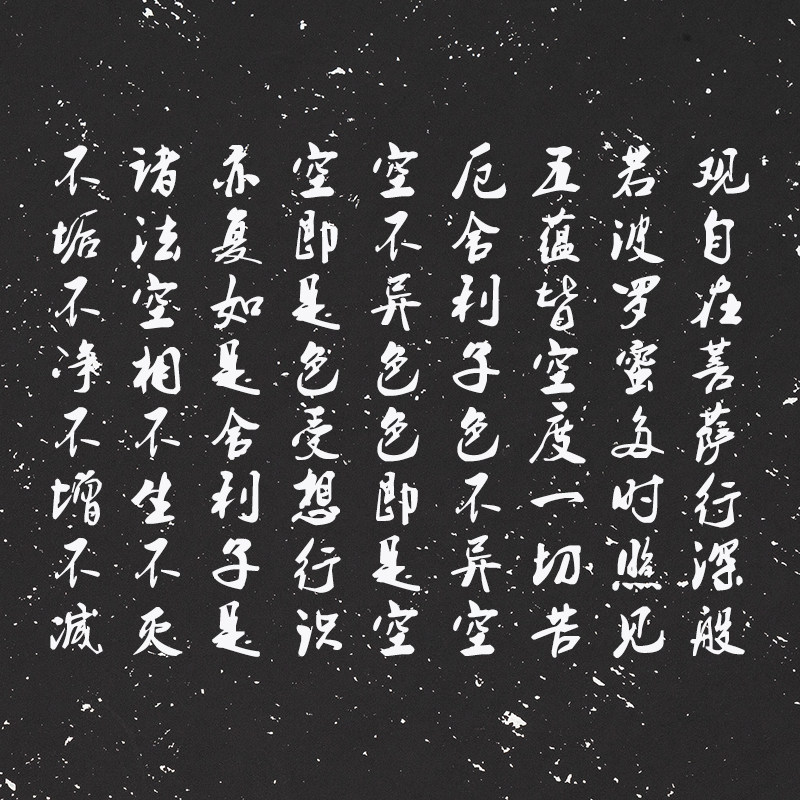 观自在菩萨行深般
若波罗蜜多时照见
五蕴皆空度一切苦
厄舍利子色不异空
空不异色色即是空
空即是色受想行识
亦复如是舍利子是
诸法空相不生不灭
不垢不净不增不减